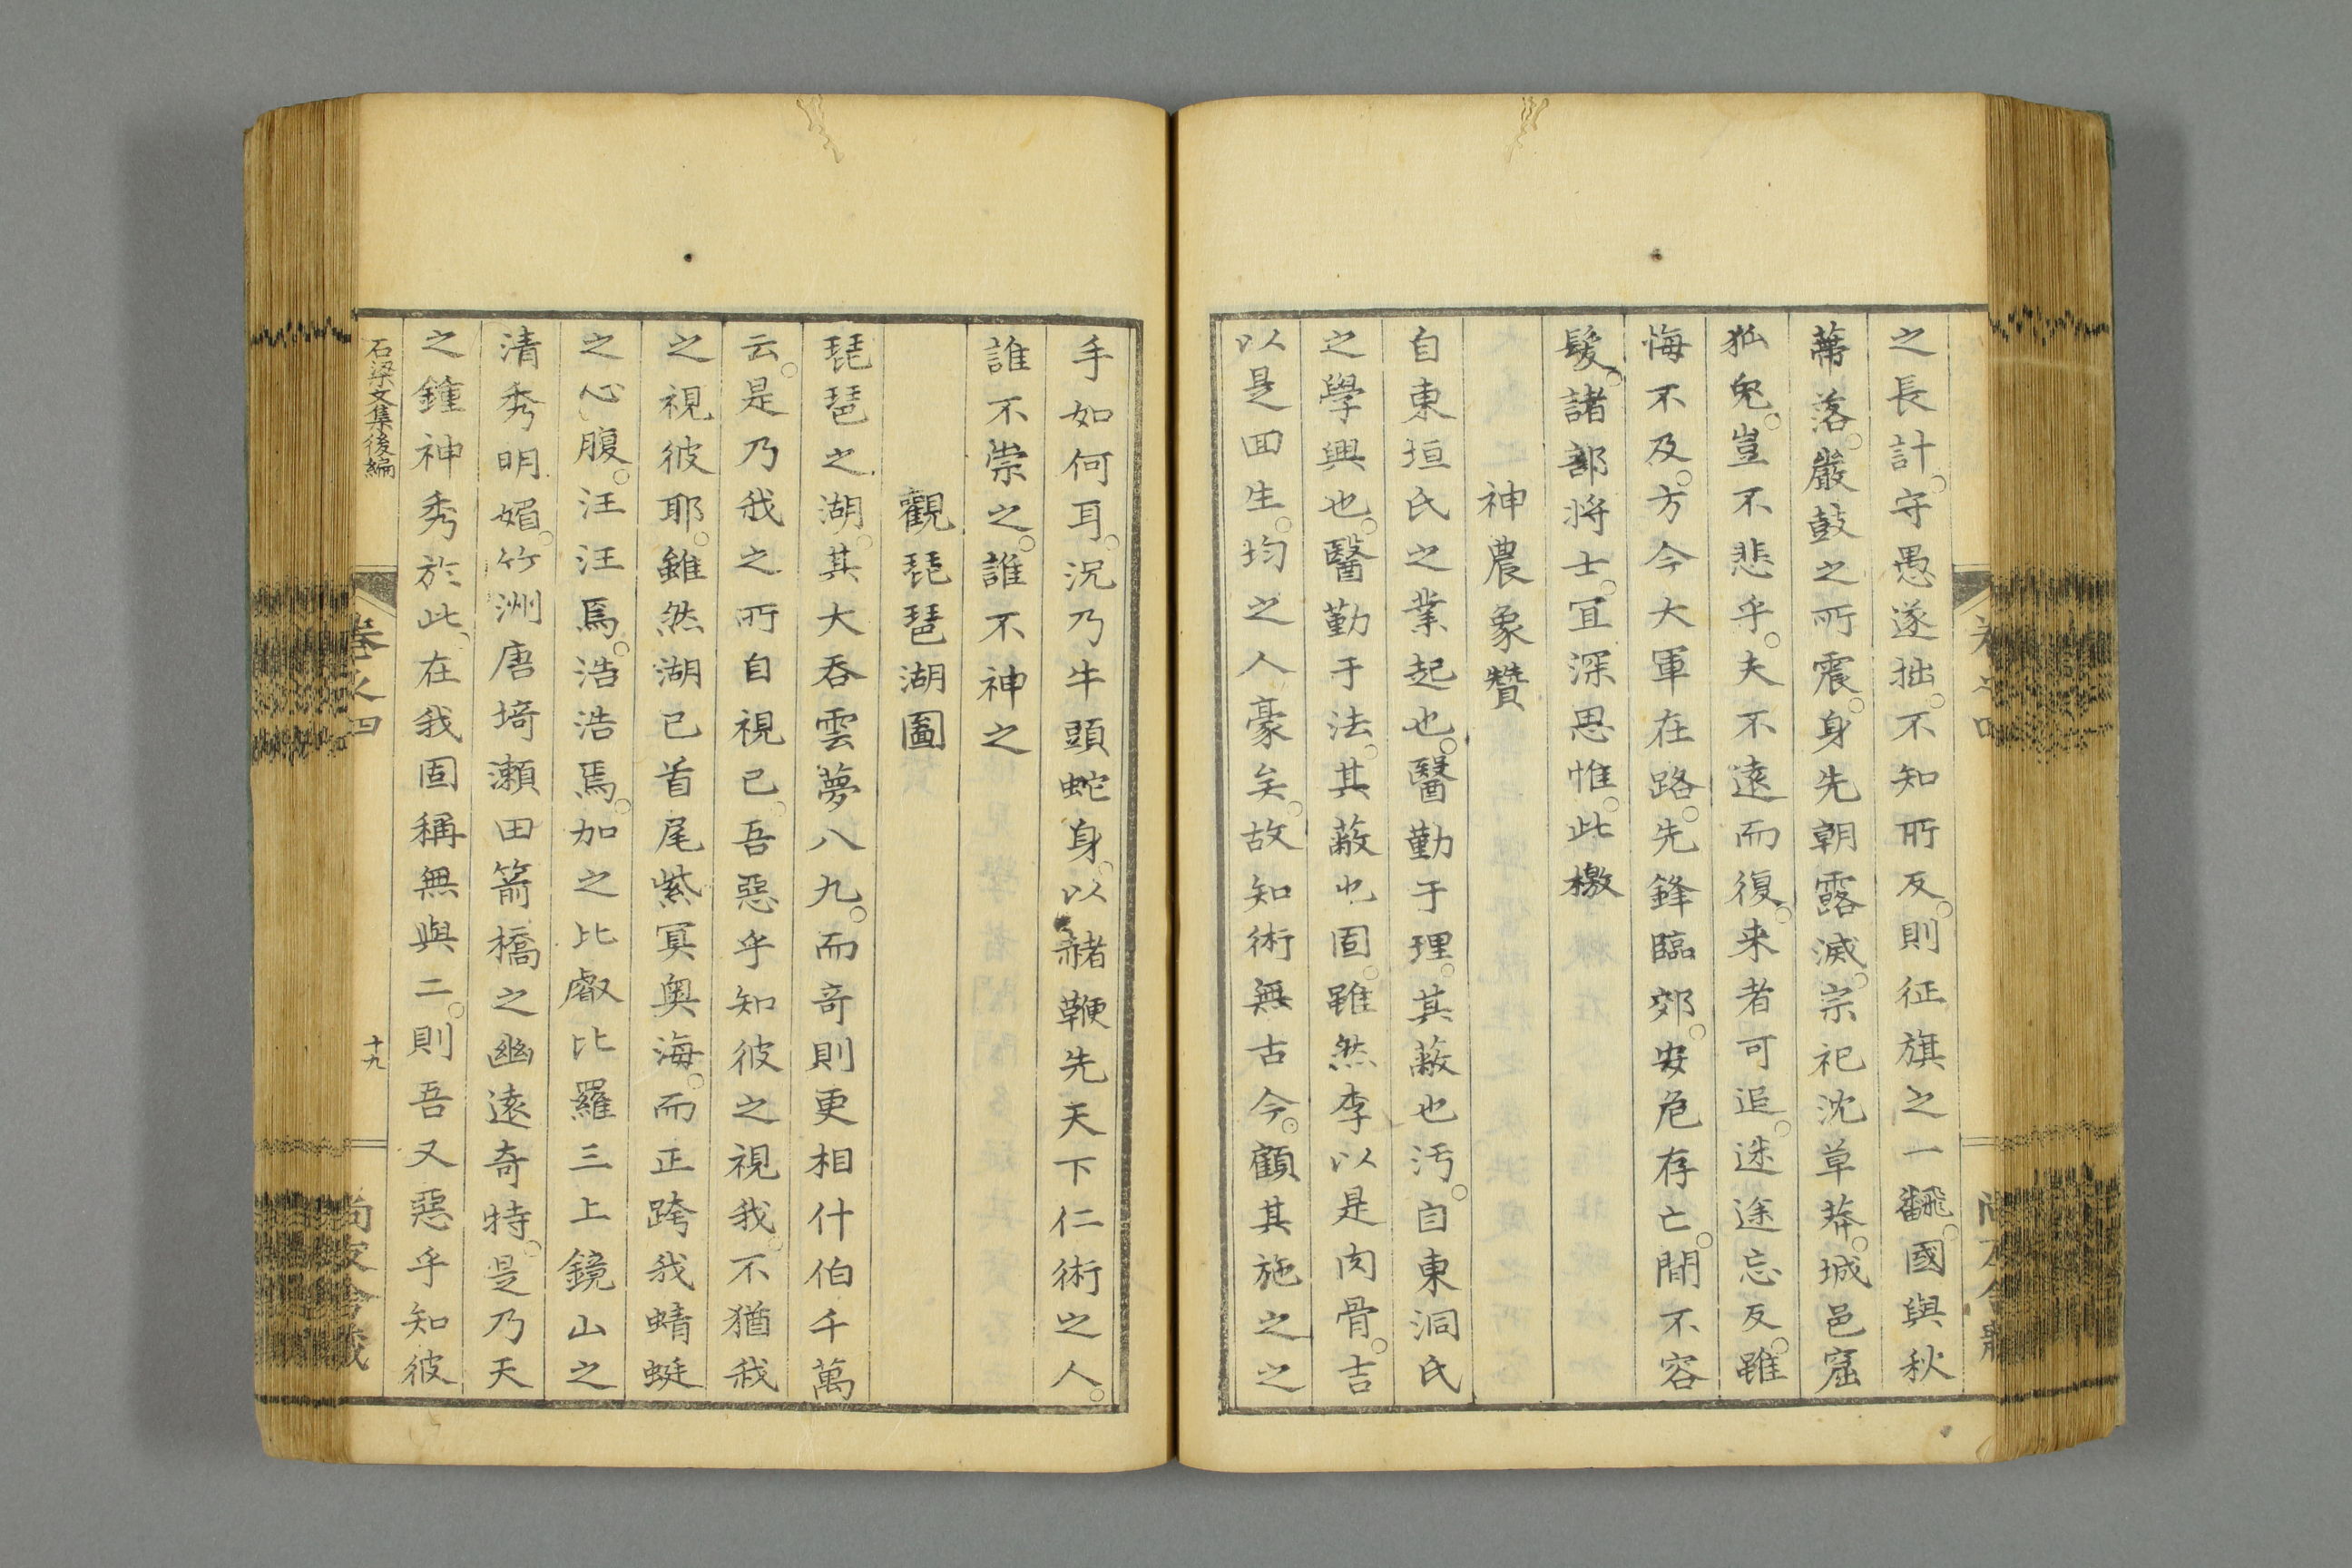 之長計。守愚遂拙。不知所反。則征旗之一飜。國與秋
蔕落。巖鼓之所震。身先朝露滅。宗祀沈草莽。城邑窟
狐兔。豈不悲乎。夫不遠而復。来者可追。迷途忘反。雖
悔不及。方今大軍在路。先鋒臨郊。安危存亡。間不容
髮。諸部将士。宜深思惟。此檄
神農象贊
自東垣氏之業起也。醫勤于理。其蔽也汚。自東洞氏
之學興也。醫勤于法。其蔽也固。雖然李以是肉骨。吉
以是回生。均之人豪矣。故知術無古今。顧其施之之
手如何耳。況乃牛頭蛇身。以赭鞭先天下仁術之人。
誰不崇之。誰不神之
觀琵琶湖圖
琵琶之湖。其大呑雲夢八九。而竒則更相什伯千萬
云。是乃我之所自視已。吾惡乎知彼之視我。不猶我
之視彼耶。雖然湖已首尾紫冥奥海。而正跨我蜻蜓
之心腹。汪汪焉。浩浩焉。加之比叡比羅三上鏡山之
清秀明媚。竹洲唐埼瀬田箭橋之幽遠奇特。是乃天
之鍾神秀於此、在我固稱無與二。則吾又惡乎知彼
石梁文集後編
卷之四
十九
尚友舎蔵